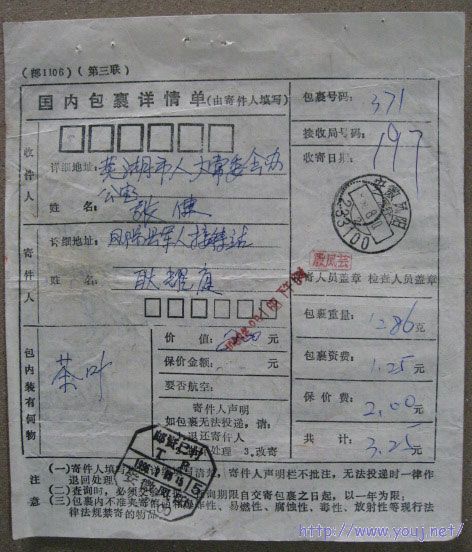 (邮1106)(第三联)
国内包裹详情单(由寄件人填写)
包裹号码: 371
接收局号码: 197
收寄日期:
收件人
详细地址: 芜湖市人大常委会办
公室
姓名: 张健
寄件人
详细地址: 凤阳县军人接待站
姓名: 耿耀庭
殷凤芸
收寄人员盖章 检查人员盖章
233100
包内装有何物
茶叶
价值: 元
保价金额: 元
要否航空:
寄件人声明
如包裹无法投递,请:
退还寄件人
处理 3.改寄
包裹重量: 1286克
包裹资费: 1.25元
保价费: 2.00元
共计: 3.25元
注意
(一)寄件人填写 清楚,寄件人声明栏不批注,无法投递时一律作
退回处理。
(二)查询时,必须交 询期限自交寄包裹之日起,以一年为限,
(三)包裹内不准夹寄信函和爆炸性、易燃性、腐蚀性、毒性、放射性等现行法
律法规禁寄的物品
http://www.youj.net/